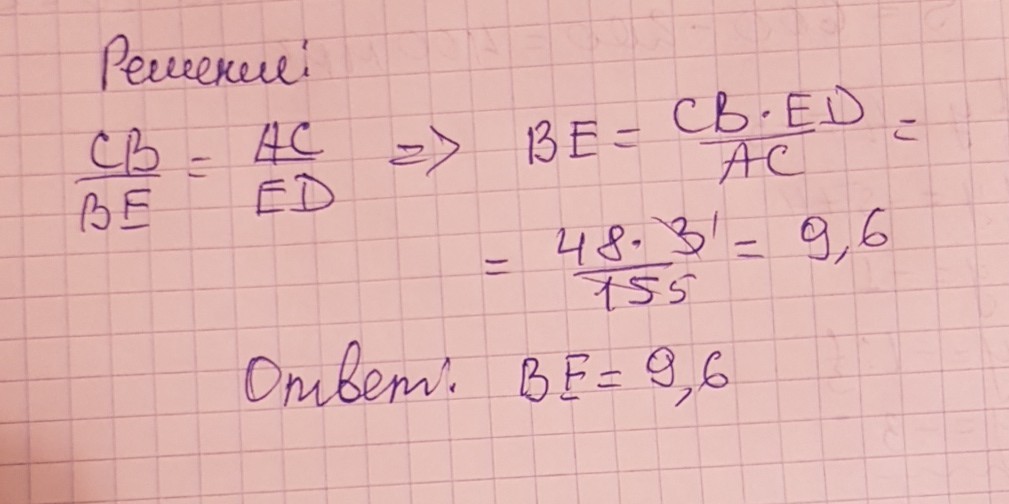 Решение:
CB/BE = AC/ED => BE = CB·ED/AC =
= 48·3¹/15 5 = 9,6
Ответ: BE = 9,6